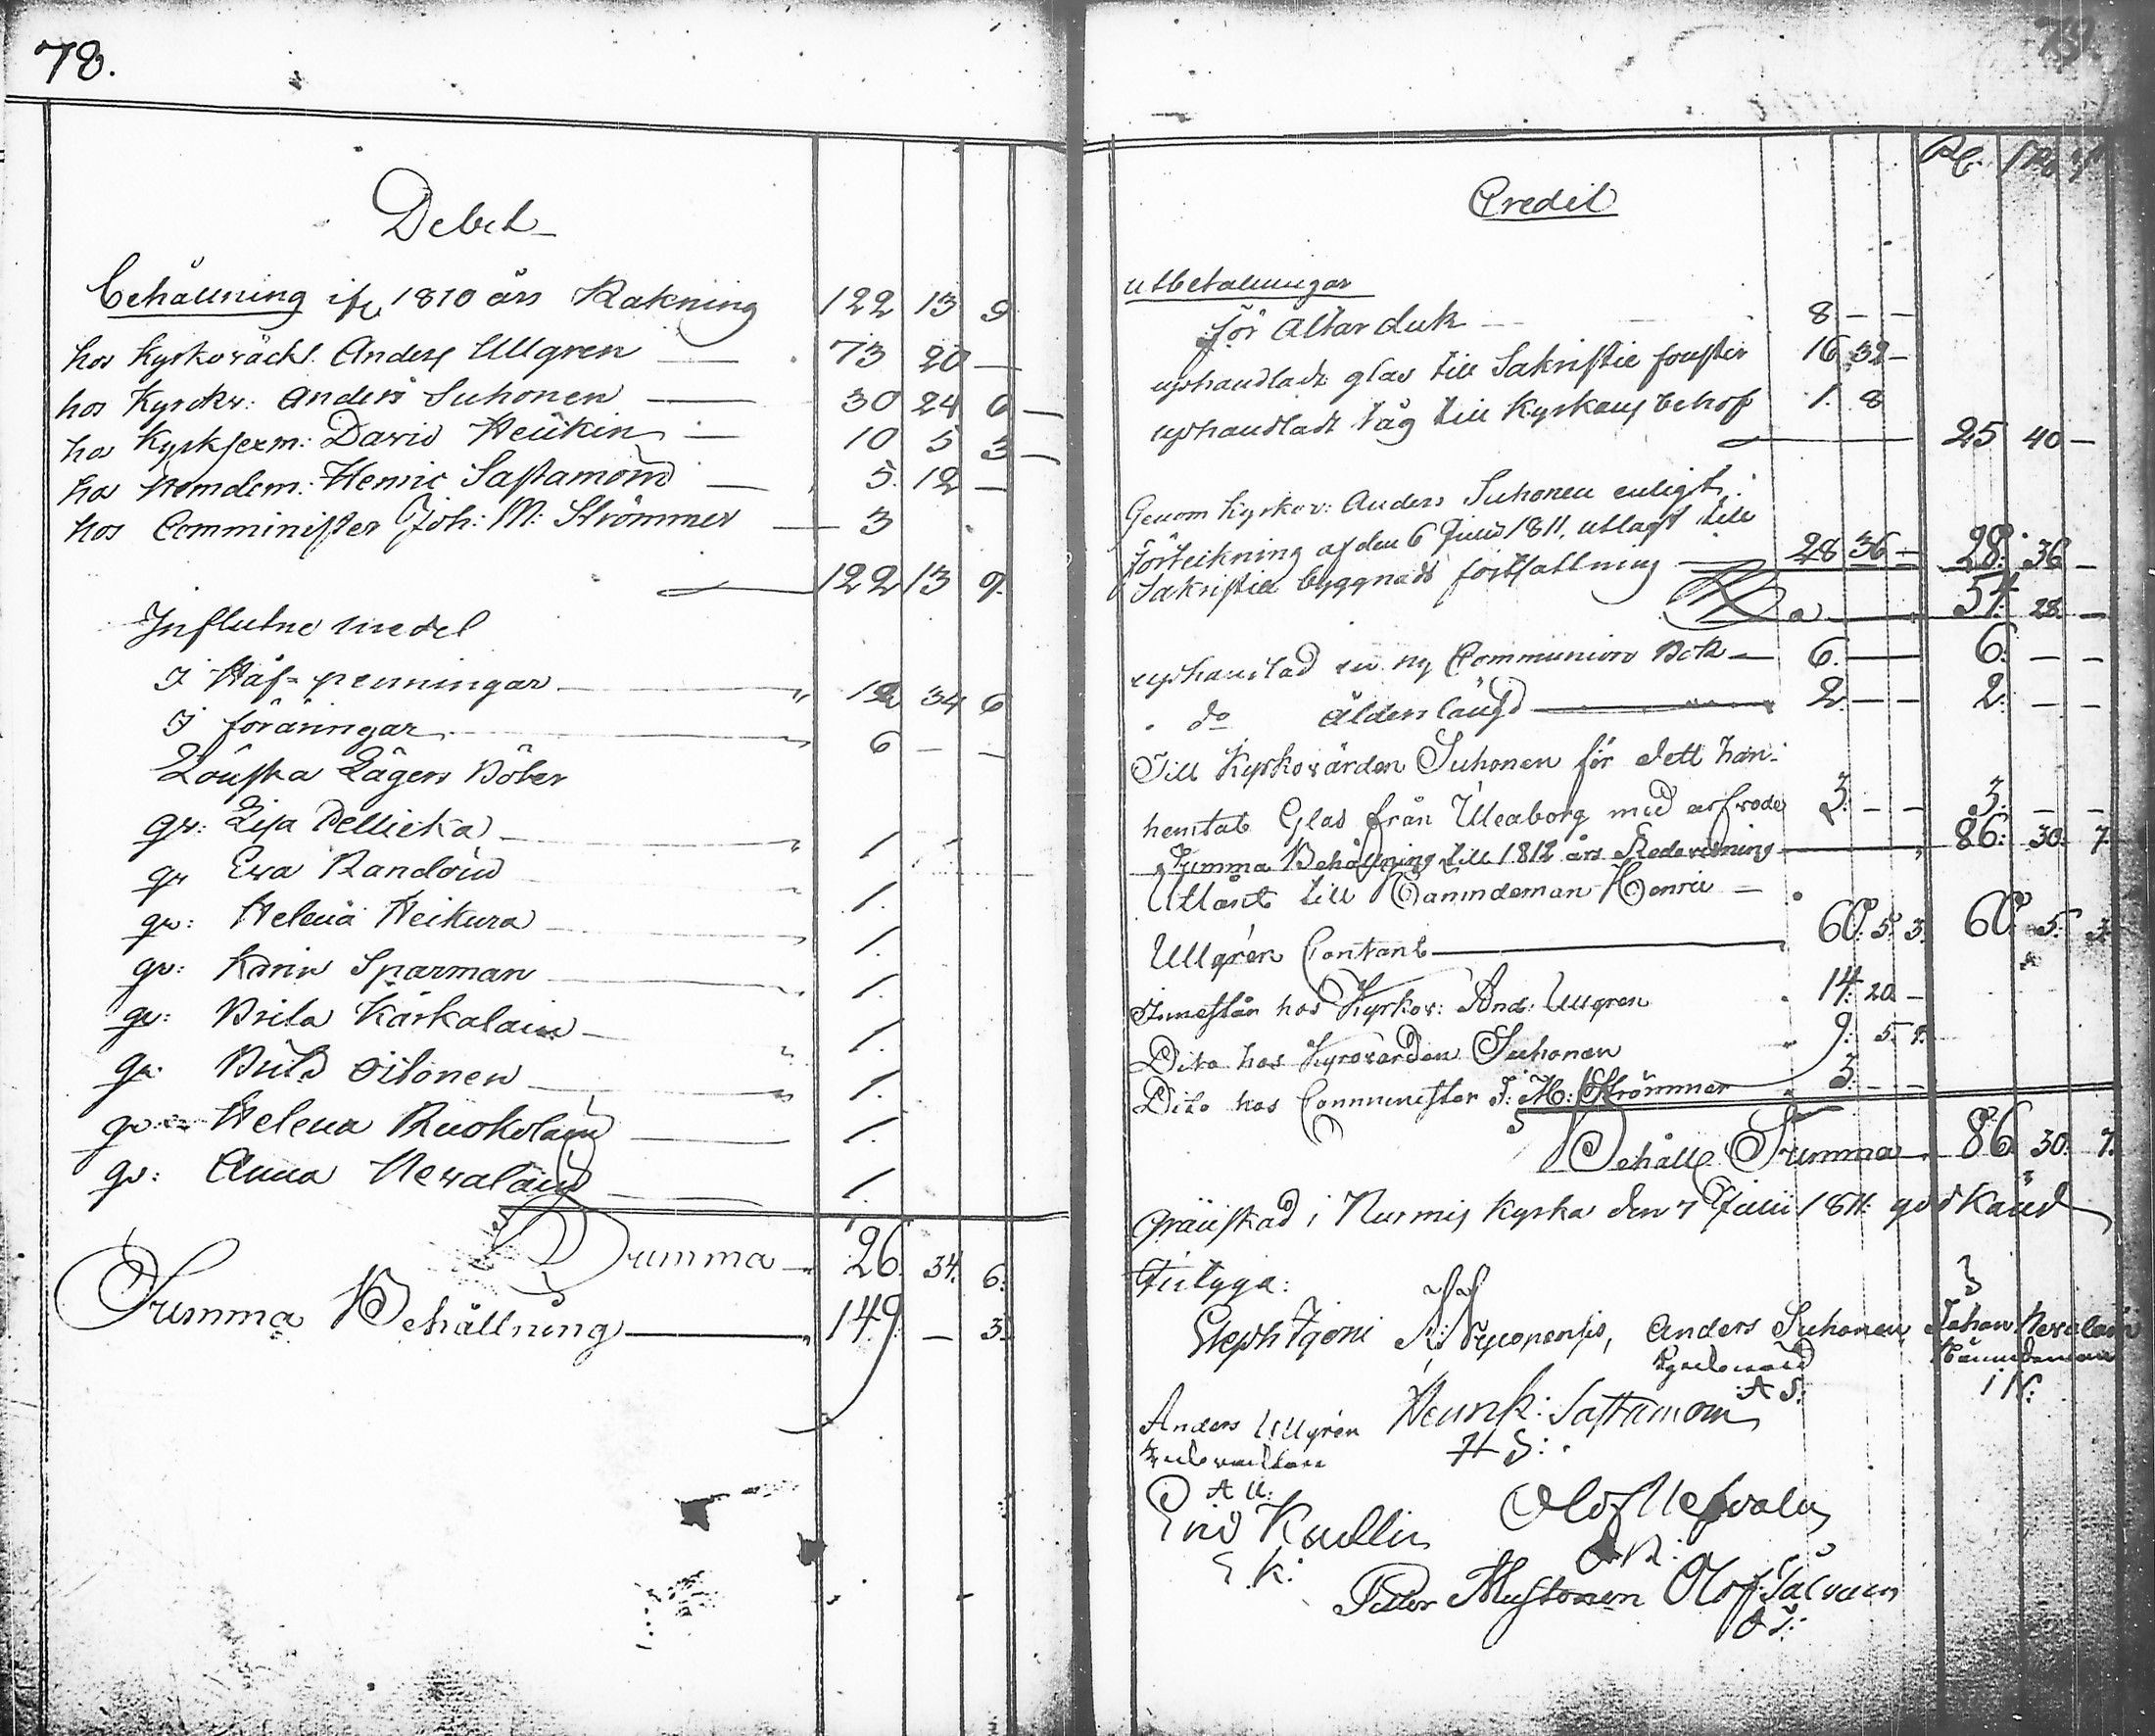 78.
Debet
Behållning ifr 1810 års Räkning 122 13 9
hos Kyrkovächt. Anders Ullgren 73 20 —
hos Kyrckv: Anders Suhonen 30 24 6
hos David 10 5 3
hos Nemdem: Henric Sastamoin 5. 12 —
hos Comminister Joh: M: Strömmer 3
122 13 9.
Influtne medel
I Håf-penningar 12 34 6
I föräringar 6 — —
Lägers Böter
qv: Lisa Pellicka 1
qv Eva Randoin 1.
qv: Helena Heikura 1.
qv: Karin Sparman 1.
qv: Brita Kärkäläin 1.
qv. Brita Oitonen 1.
qv: Helena Ruokolain 1.
qv: Anna Nevalain 1.
Summa 26. 34. 6.
Summa Behållning 149. — 3.
79.
Credit
utbetalningar
för Altar duk 8 — —
uphandladt glas till Sakristie fenster 16 32 —
uphandladt tåg till Kyrkans behof 1. 8
25 40 —
Genom Kyrkov: Anders Suhonen enligt
förteikning af den 6 Julii 1811. utlagt till
Sakristie byggnads fortsättning 28 36 — 28. 36 —
54. 28. —
uphandlad en ny Communion Bok — 6. — 6. — —
do Ålders längd 2. — — 2. — —
Till Kyrkovärden Suhonen för dett han
hemtat Glas från Uleaborg med 3. — — 3. — —
Summa Behållning till 1812 års Redovisning 86. 30. 7.
Utlånt till Nämndeman Henric —
Ullgrén Contant 60. 5. 3. 60. 5. 3.
Innestår hos Kyrkov: And: Ullgren 14. 20. —
Dito hos Kyrkovärden Suhonen 9. 5. 4.
Dito hos Comminister J: M: Strömmer 3. — —
Behåll Summa 86. 30. 7.
Granskad i Nurmis Kyrka den 7 Julii 1811. godkänd
Intyga:
Steph Igoni Anders Suhonen Johan Nevalain
Nämndeman
A S. I N:
Anders Ullgrén Henrik: Sastamoin
H S:
A U:
Olof Nevalain
O N:
E. K:
Petter Mustonen Olof